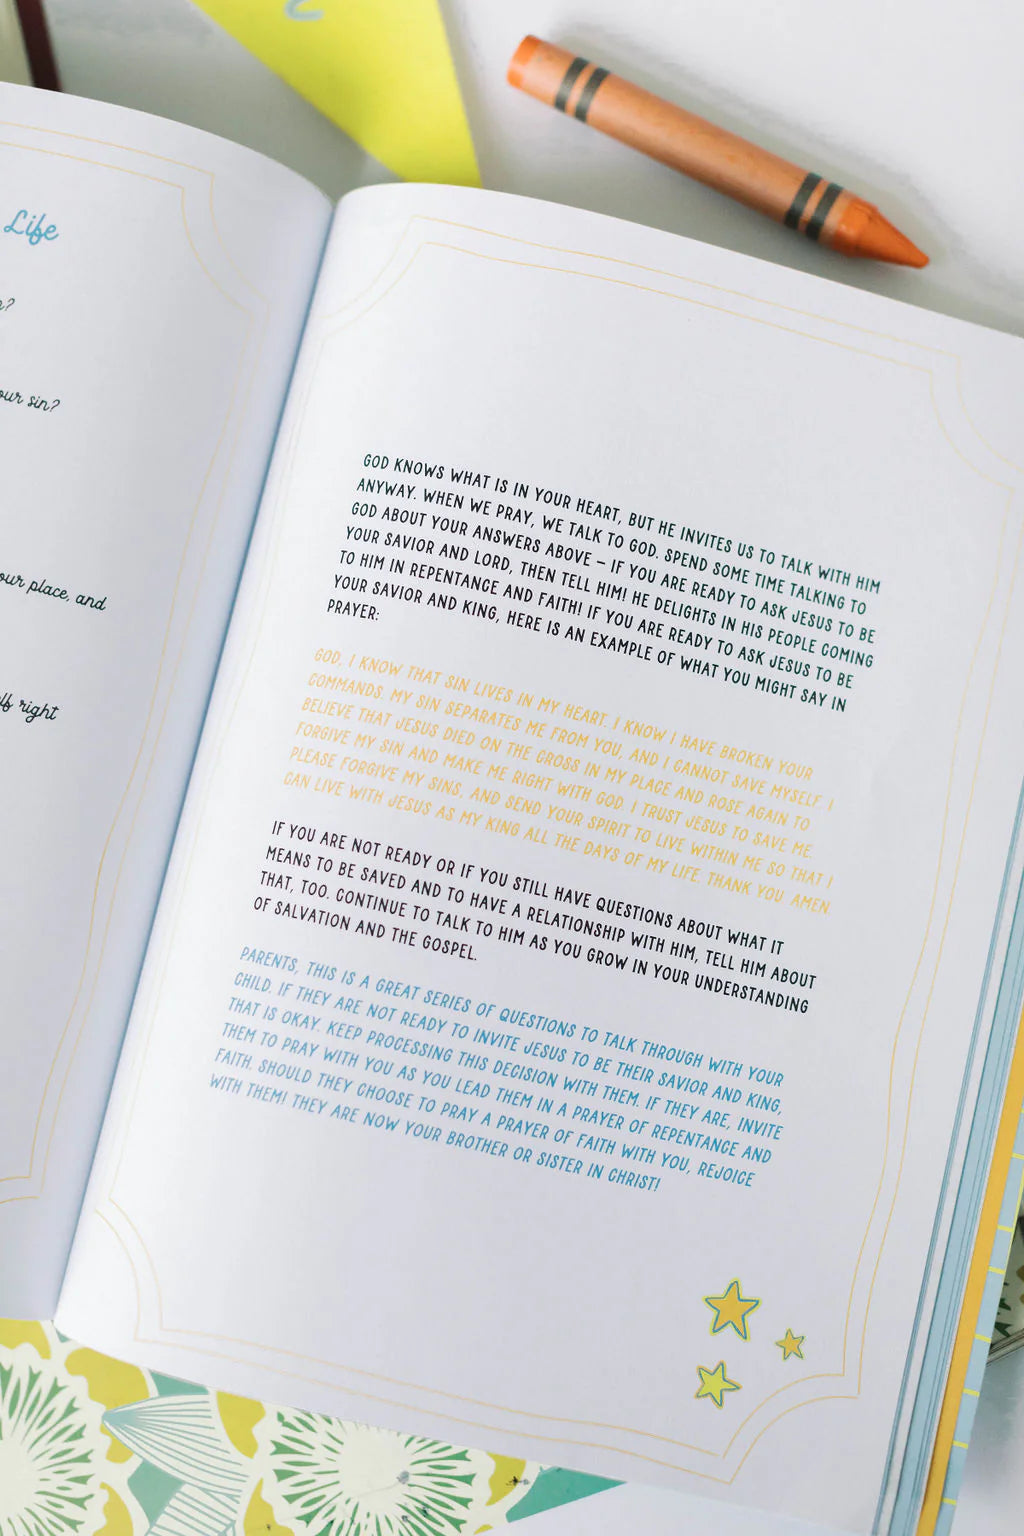 Life
?
our sin?
our place, and
right
GOD KNOWS WHAT IS IN YOUR HEART, BUT HE INVITES US TO TALK WITH HIM
ANYWAY. WHEN WE PRAY, WE TALK TO GOD. SPEND SOME TIME TALKING TO
GOD ABOUT YOUR ANSWERS ABOVE – IF YOU ARE READY TO ASK JESUS TO BE
YOUR SAVIOR AND LORD, THEN TELL HIM! HE DELIGHTS IN HIS PEOPLE COMING
TO HIM IN REPENTANCE AND FAITH! IF YOU ARE READY TO ASK JESUS TO BE
YOUR SAVIOR AND KING, HERE IS AN EXAMPLE OF WHAT YOU MIGHT SAY IN
PRAYER:
GOD, I KNOW THAT SIN LIVES IN MY HEART. I KNOW I HAVE BROKEN YOUR
COMMANDS. MY SIN SEPARATES ME FROM YOU, AND I CANNOT SAVE MYSELF. I
BELIEVE THAT JESUS DIED ON THE CROSS IN MY PLACE AND ROSE AGAIN TO
FORGIVE MY SIN AND MAKE ME RIGHT WITH GOD. I TRUST JESUS TO SAVE ME.
PLEASE FORGIVE MY SINS, AND SEND YOUR SPIRIT TO LIVE WITHIN ME SO THAT I
CAN LIVE WITH JESUS AS MY KING ALL THE DAYS OF MY LIFE. THANK YOU. AMEN.
IF YOU ARE NOT READY OR IF YOU STILL HAVE QUESTIONS ABOUT WHAT IT
MEANS TO BE SAVED AND TO HAVE A RELATIONSHIP WITH HIM, TELL HIM ABOUT
THAT, TOO. CONTINUE TO TALK TO HIM AS YOU GROW IN YOUR UNDERSTANDING
OF SALVATION AND THE GOSPEL.
PARENTS, THIS IS A GREAT SERIES OF QUESTIONS TO TALK THROUGH WITH YOUR
CHILD. IF THEY ARE NOT READY TO INVITE JESUS TO BE THEIR SAVIOR AND KING,
THAT IS OKAY. KEEP PROCESSING THIS DECISION WITH THEM. IF THEY ARE, INVITE
THEM TO PRAY WITH YOU AS YOU LEAD THEM IN A PRAYER OF REPENTANCE AND
FAITH. SHOULD THEY CHOOSE TO PRAY A PRAYER OF FAITH WITH YOU, REJOICE
WITH THEM! THEY ARE NOW YOUR BROTHER OR SISTER IN CHRIST!